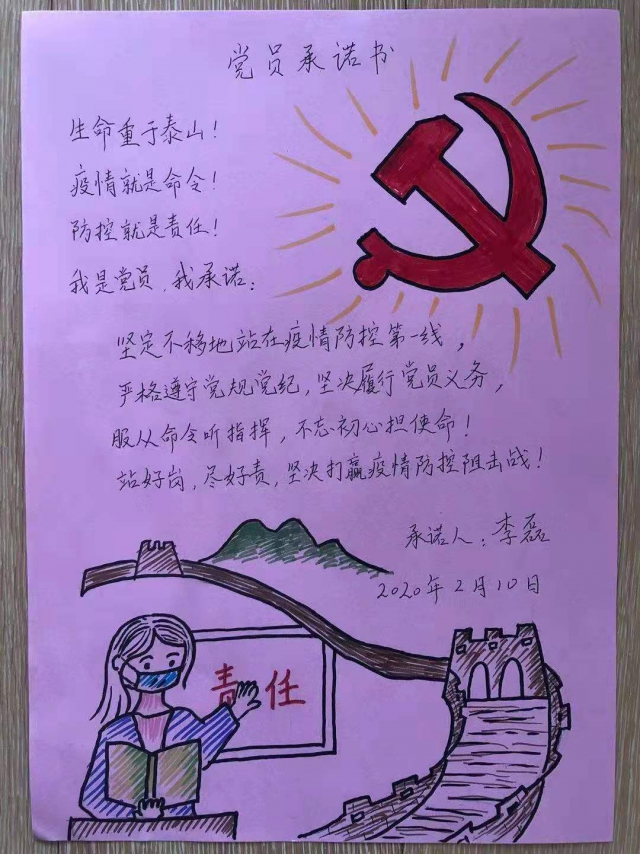 党员承诺书
生命重于泰山！
疫情就是命令！
防控就是责任！
我是党员，我承诺：
坚定不移地站在疫情防控第一线，
严格遵守党规党纪，坚决履行党员义务，
服从命令听指挥，不忘初心担使命！
站好岗，尽好责，坚决打赢疫情防控阻击战！
承诺人：李磊
2020年2月10日
责任